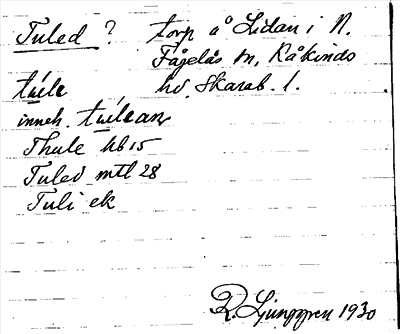 Tuled ? torp å Lidan i N.
Fågelås sn, Kåkinds
túle hd, Skarab. l.
inneh. túlean
Thule hb 15
Tuled mtl 28
Tuli ek
R. Ljunggren 1930